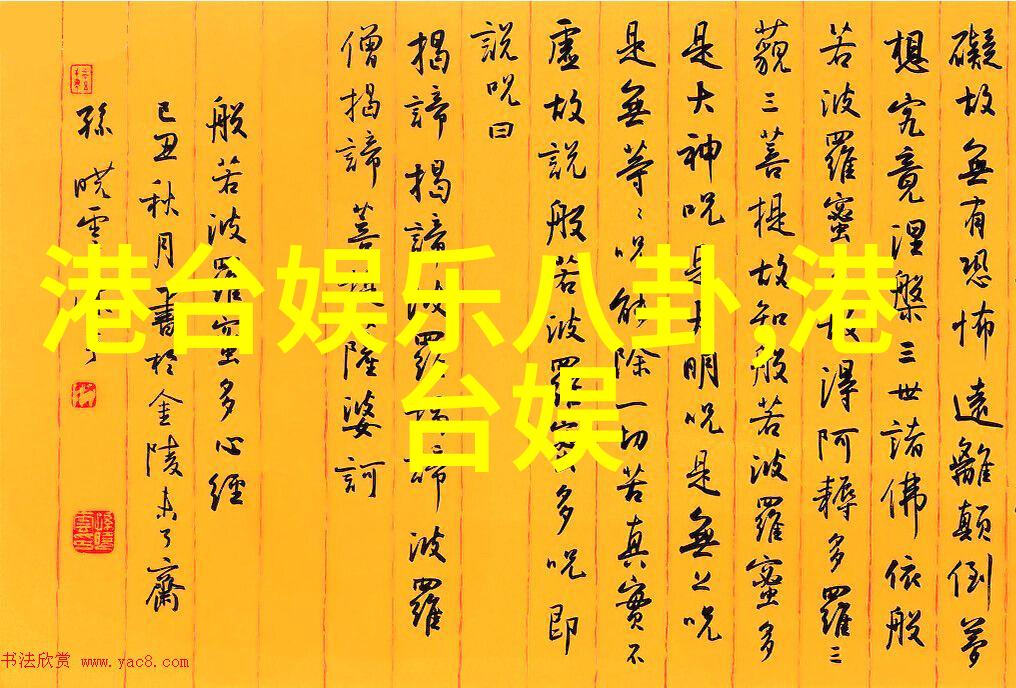 礙故無有恐怖遠離顛倒夢
想究竟涅槃三世諸佛依般
若波羅蜜故得阿耨多羅三
藐三菩提故知般若波羅蜜多
是大神呪是大明呪是無上呪
是無等〻呪能除一切苦真實不
虛故說般若波羅蜜多呪即
說呪曰
揭諦揭諦波羅揭諦波羅
僧揭諦菩提薩婆訶
般若波羅蜜多心經
己丑秋月書於金陵未了齋
孫曉雲
港台娱乐八卦,港
台娱
书法欣赏 www.yac8.com